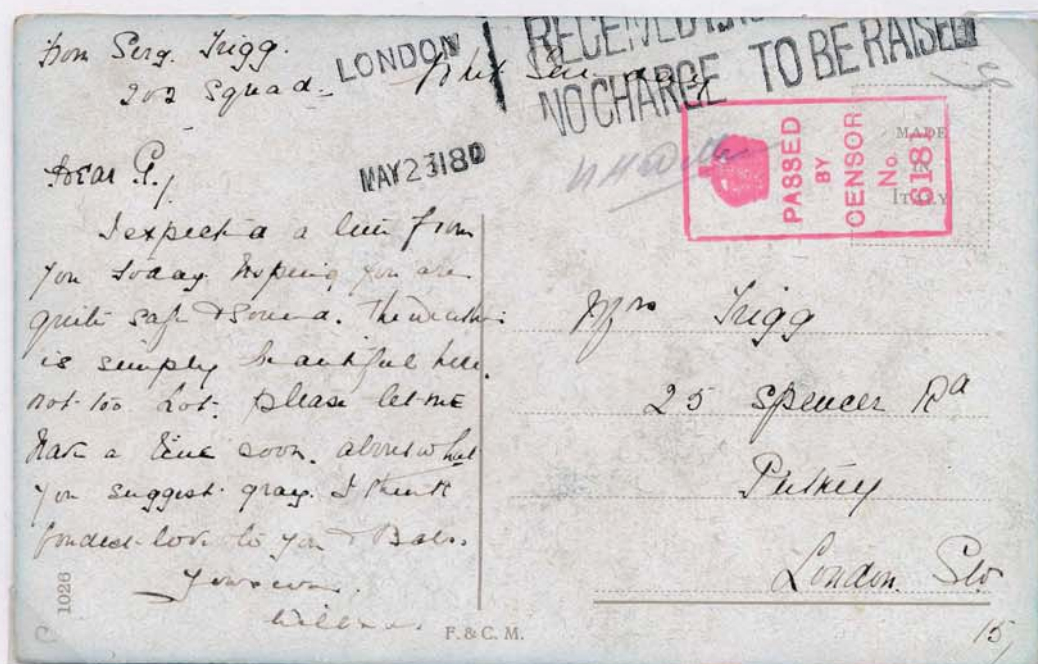 From Serg. Trigg.
202 Squad.
LONDON
RECEIVED
NO CHARGE TO BE RAISED
MAY 23 18
PASSED
BY
CENSOR
No.
6181
MADE
IN
ITALY
Dear P.,
I expected a line from
you today. Hoping you are
quite safe & sound. The weather
is simply beautiful here.
not too hot. Please let me
have a line soon. about what
you suggest. I think
fondest love to you & Babs.
Yours ever.
Mrs Trigg
25 Spencer Rd
Putney
London. SW.
1026
F. & C. M.
15